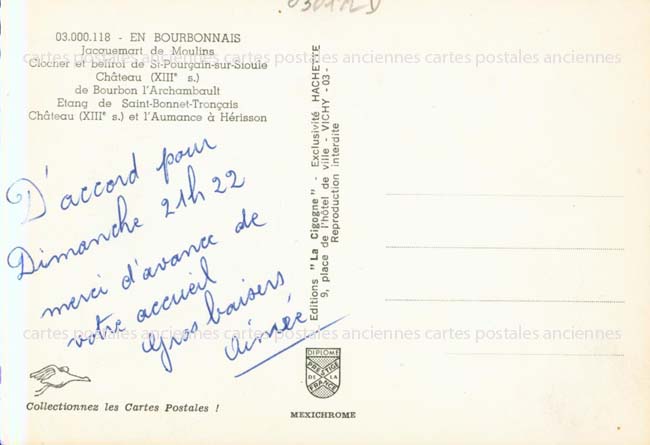 0301LD
03.000.118 - EN BOURBONNAIS
Jacquemart de Moulins
Clocher et beffroi de St-Pourçain-sur-Sioule
Château (XIIIᵉ s.)
de Bourbon l'Archambault
Etang de Saint-Bonnet-Tronçais
Château (XIIIᵉ s.) et l'Aumance à Hérisson
cartes postales anciennes cartes postales anciennes cartes postales anciennes
D'accord pour
Dimanche 21h22
merci d'avance de
votre accueil
Gros baisers
Aimée
cartes postales anciennes cartes postales anciennes cartes postales anciennes
Editions "La Cigogne" - Exclusivité HACHETTE
9, place de l'hôtel de ville - VICHY -03-
Reproduction interdite
DIPLOME
PRESTIGE
DE LA
FRANCE
Collectionnez les Cartes Postales !
MEXICHROME